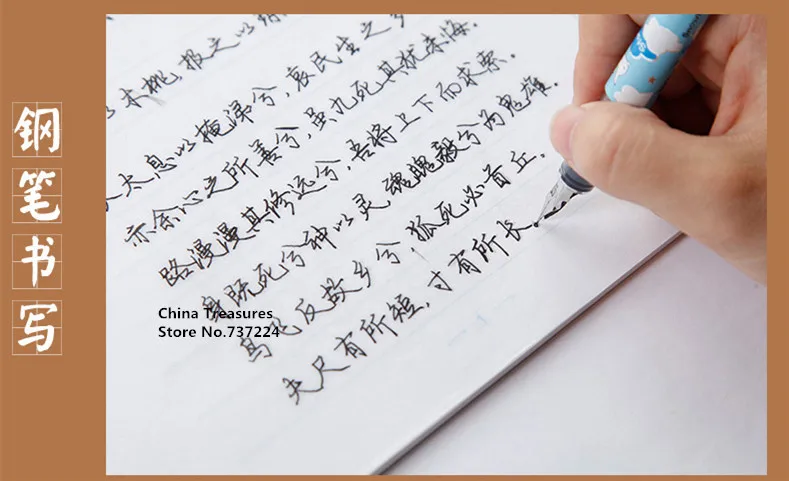 钢笔书写
木桃,报之以
太息以掩涕兮,哀民生之
亦余心之所善兮,虽九死其犹未悔。
路漫漫其修远兮,吾将上下而求索。
身既死兮神以灵 魂魄毅兮为鬼雄.
鸟飞反故乡兮,狐死必首丘.
夫尺有所短,寸有所长.
China Treasures
Store No.737224